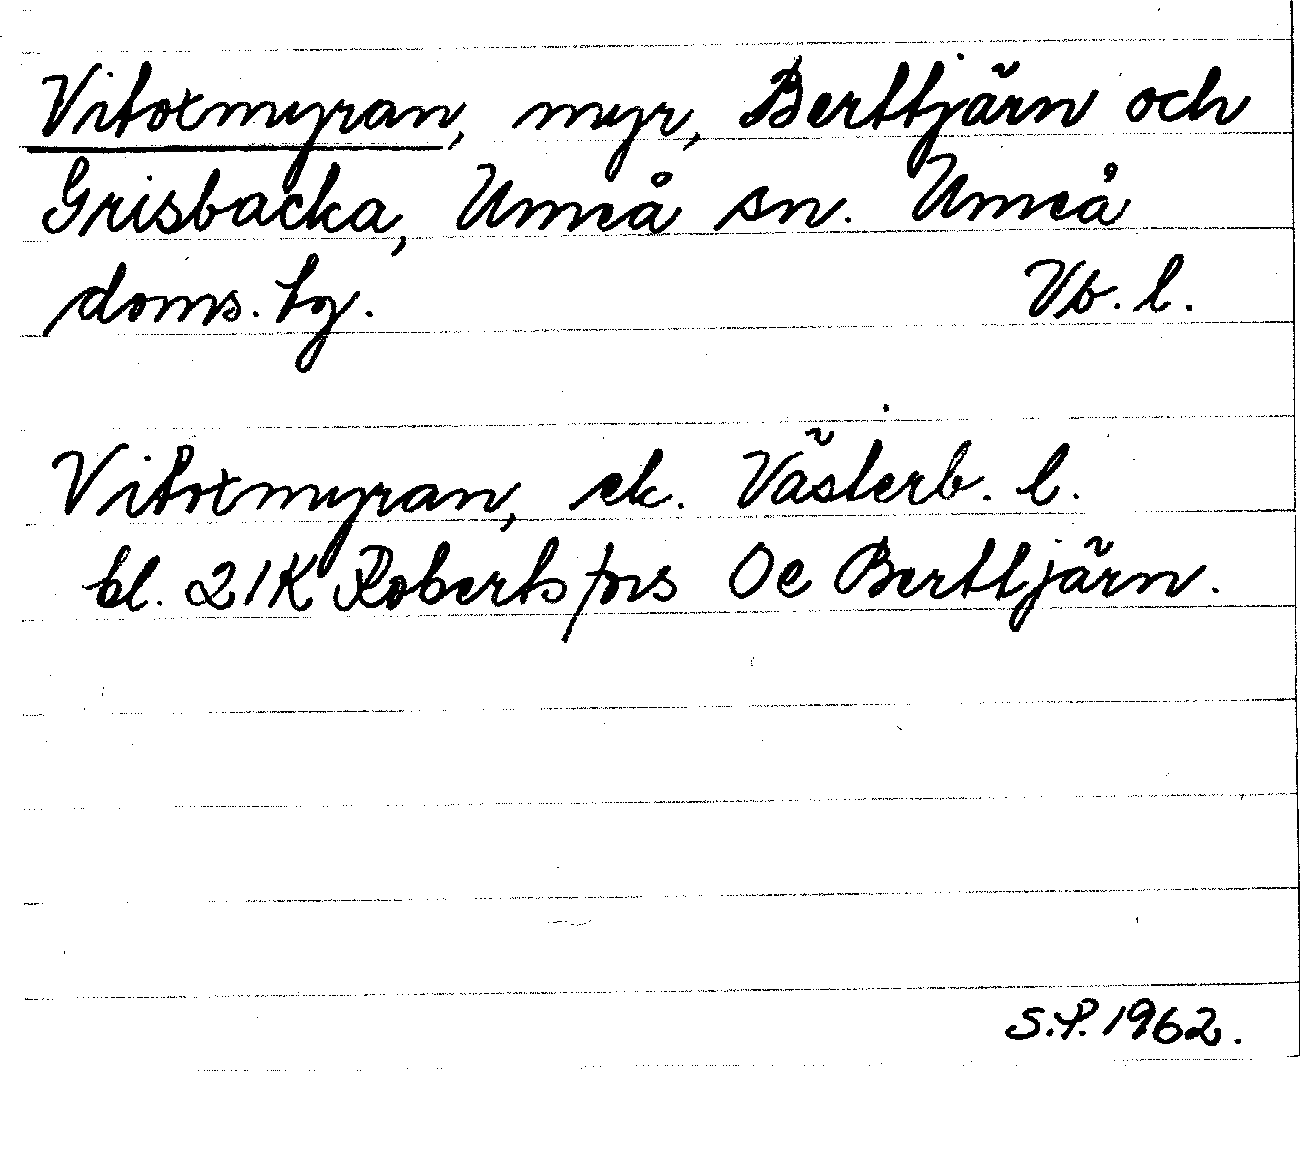 Vitoxmyran, myr, Berttjärn och
Grisbacka, Umeå sn. Umeå
doms. hg. Vb. l.
Vitoxmyran, ek. Västerb. l.
bl. 21K Robertsfors Oe Berttjärn.
S.P. 1962.